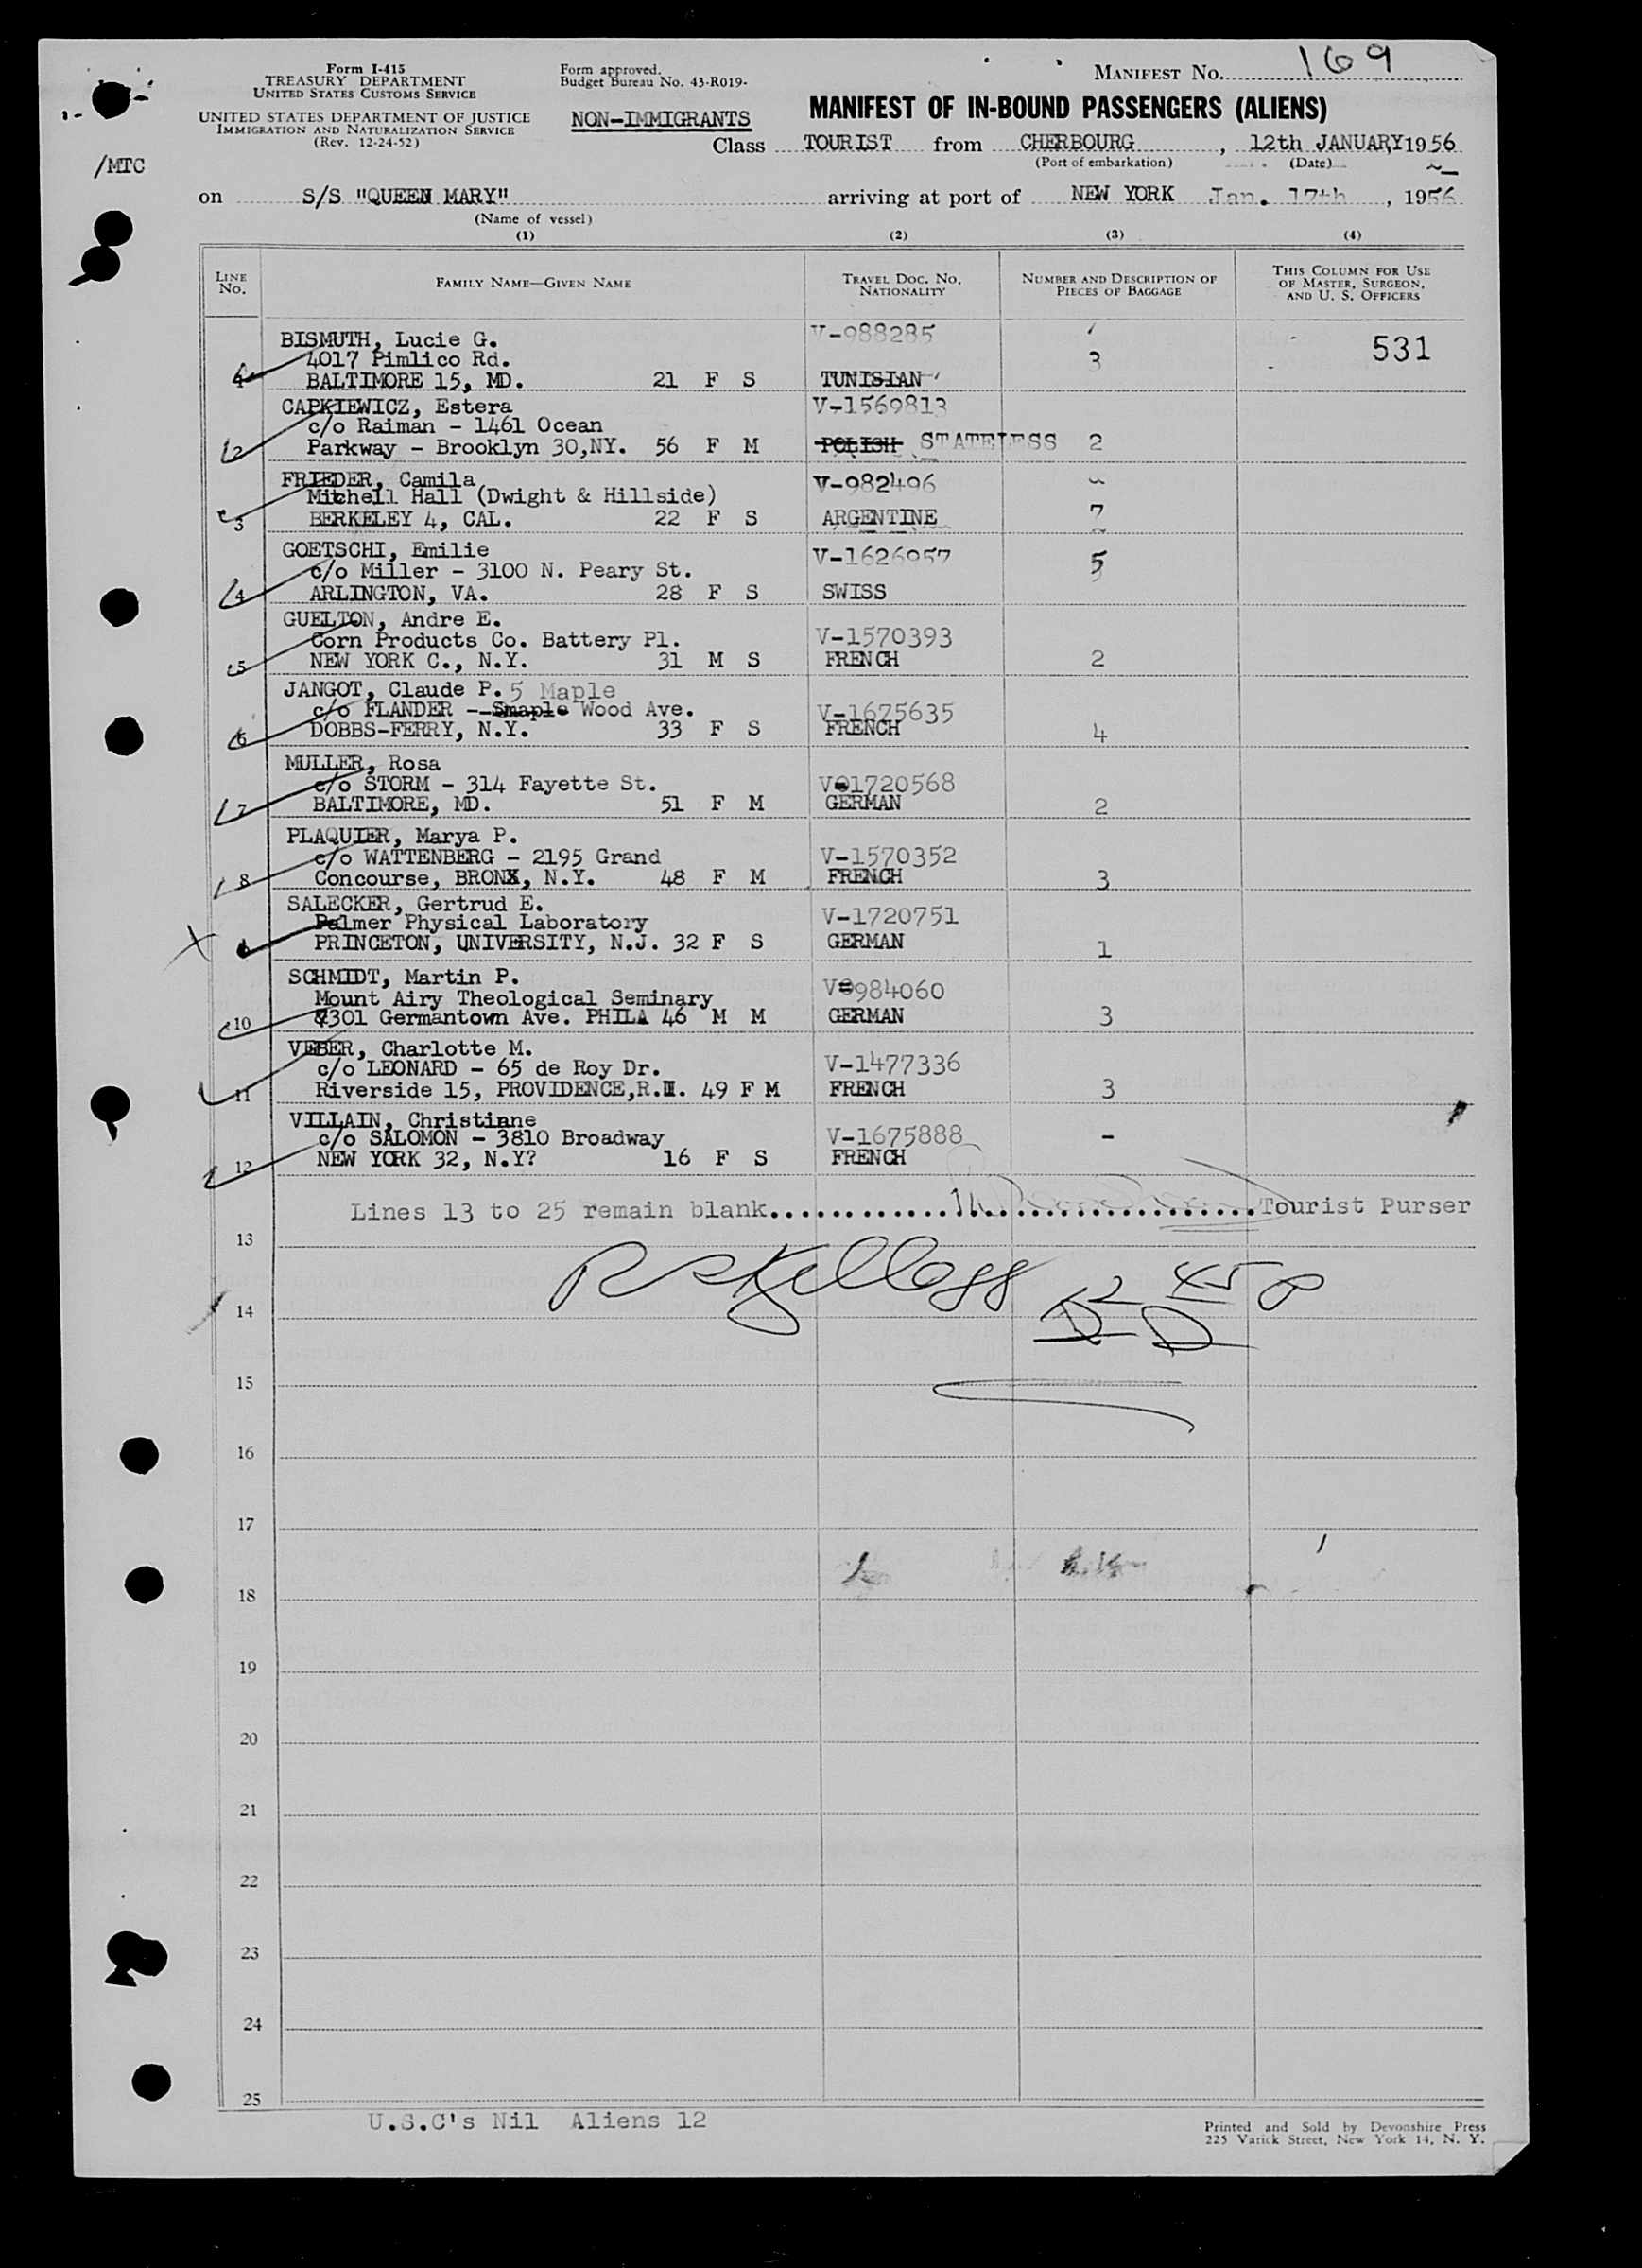 Form I-415
TREASURY DEPARTMENT
UNITED STATES CUSTOMS SERVICE
UNITED STATES DEPARTMENT OF JUSTICE
IMMIGRATION AND NATURALIZATION SERVICE
(Rev. 12-24-52)
Form approved.
Budget Bureau No. 43-R019-
NON-IMMIGRANTS
MANIFEST No. 169
MANIFEST OF IN-BOUND PASSENGERS (ALIENS)
/MTC
Class TOURIST from CHERBOURG, 12th JANUARY 1956
(Port of embarkation) (Date)
on S/S "QUEEN MARY" arriving at port of NEW YORK Jan. 17th, 1956
(Name of vessel)
(1) (2) (3) (4)
LINE No. FAMILY NAME—GIVEN NAME TRAVEL DOC. NO. NATIONALITY NUMBER AND DESCRIPTION OF PIECES OF BAGGAGE THIS COLUMN FOR USE OF MASTER, SURGEON, AND U. S. OFFICERS
BISMUTH, Lucie G. V-988285
4017 Pimlico Rd. 3 531
BALTIMORE 15, MD. 21 F S TUNISIAN
CAPKIEWICZ, Estera V-1569813
c/o Raiman - 1461 Ocean
2 Parkway - Brooklyn 30,NY. 56 F M POLISH STATELESS 2
FRIEDER, Camila V-982496
Mitchell Hall (Dwight & Hillside)
3 BERKELEY 4, CAL. 22 F S ARGENTINE 7
GOETSCHI, Emilie V-1626957 5
c/o Miller - 3100 N. Peary St.
4 ARLINGTON, VA. 28 F S SWISS
GUELTON, Andre E.
Corn Products Co. Battery Pl. V-1570393
5 NEW YORK C., N.Y. 31 M S FRENCH 2
JANGOT, Claude P. 5 Maple
c/o FLANDER - Smaple Wood Ave. V-1675635
6 DOBBS-FERRY, N.Y. 33 F S FRENCH 4
MULLER, Rosa
c/o STORM - 314 Fayette St. V-1720568
7 BALTIMORE, MD. 51 F M GERMAN 2
PLAQUIER, Marya P.
c/o WATTENBERG - 2195 Grand V-1570352
8 Concourse, BRONX, N.Y. 48 F M FRENCH 3
SALECKER, Gertrud E.
Palmer Physical Laboratory V-1720751
PRINCETON, UNIVERSITY, N.J. 32 F S GERMAN 1
SCHMIDT, Martin P. V-984060
Mount Airy Theological Seminary
10 7301 Germantown Ave. PHILA 46 M M GERMAN 3
VEBER, Charlotte M.
c/o LEONARD - 65 de Roy Dr. V-1477336
11 Riverside 15, PROVIDENCE,R.I. 49 F M FRENCH 3
VILLAIN, Christiane
c/o SALOMON - 3810 Broadway V-1675888 -
12 NEW YORK 32, N.Y? 16 F S FRENCH
Lines 13 to 25 remain blank.................................Tourist Purser
13
14
15
16
17
18
19
20
21
22
23
24
25
U.S.C's Nil Aliens 12
Printed and Sold by Devonshire Press
225 Varick Street, New York 14, N. Y.